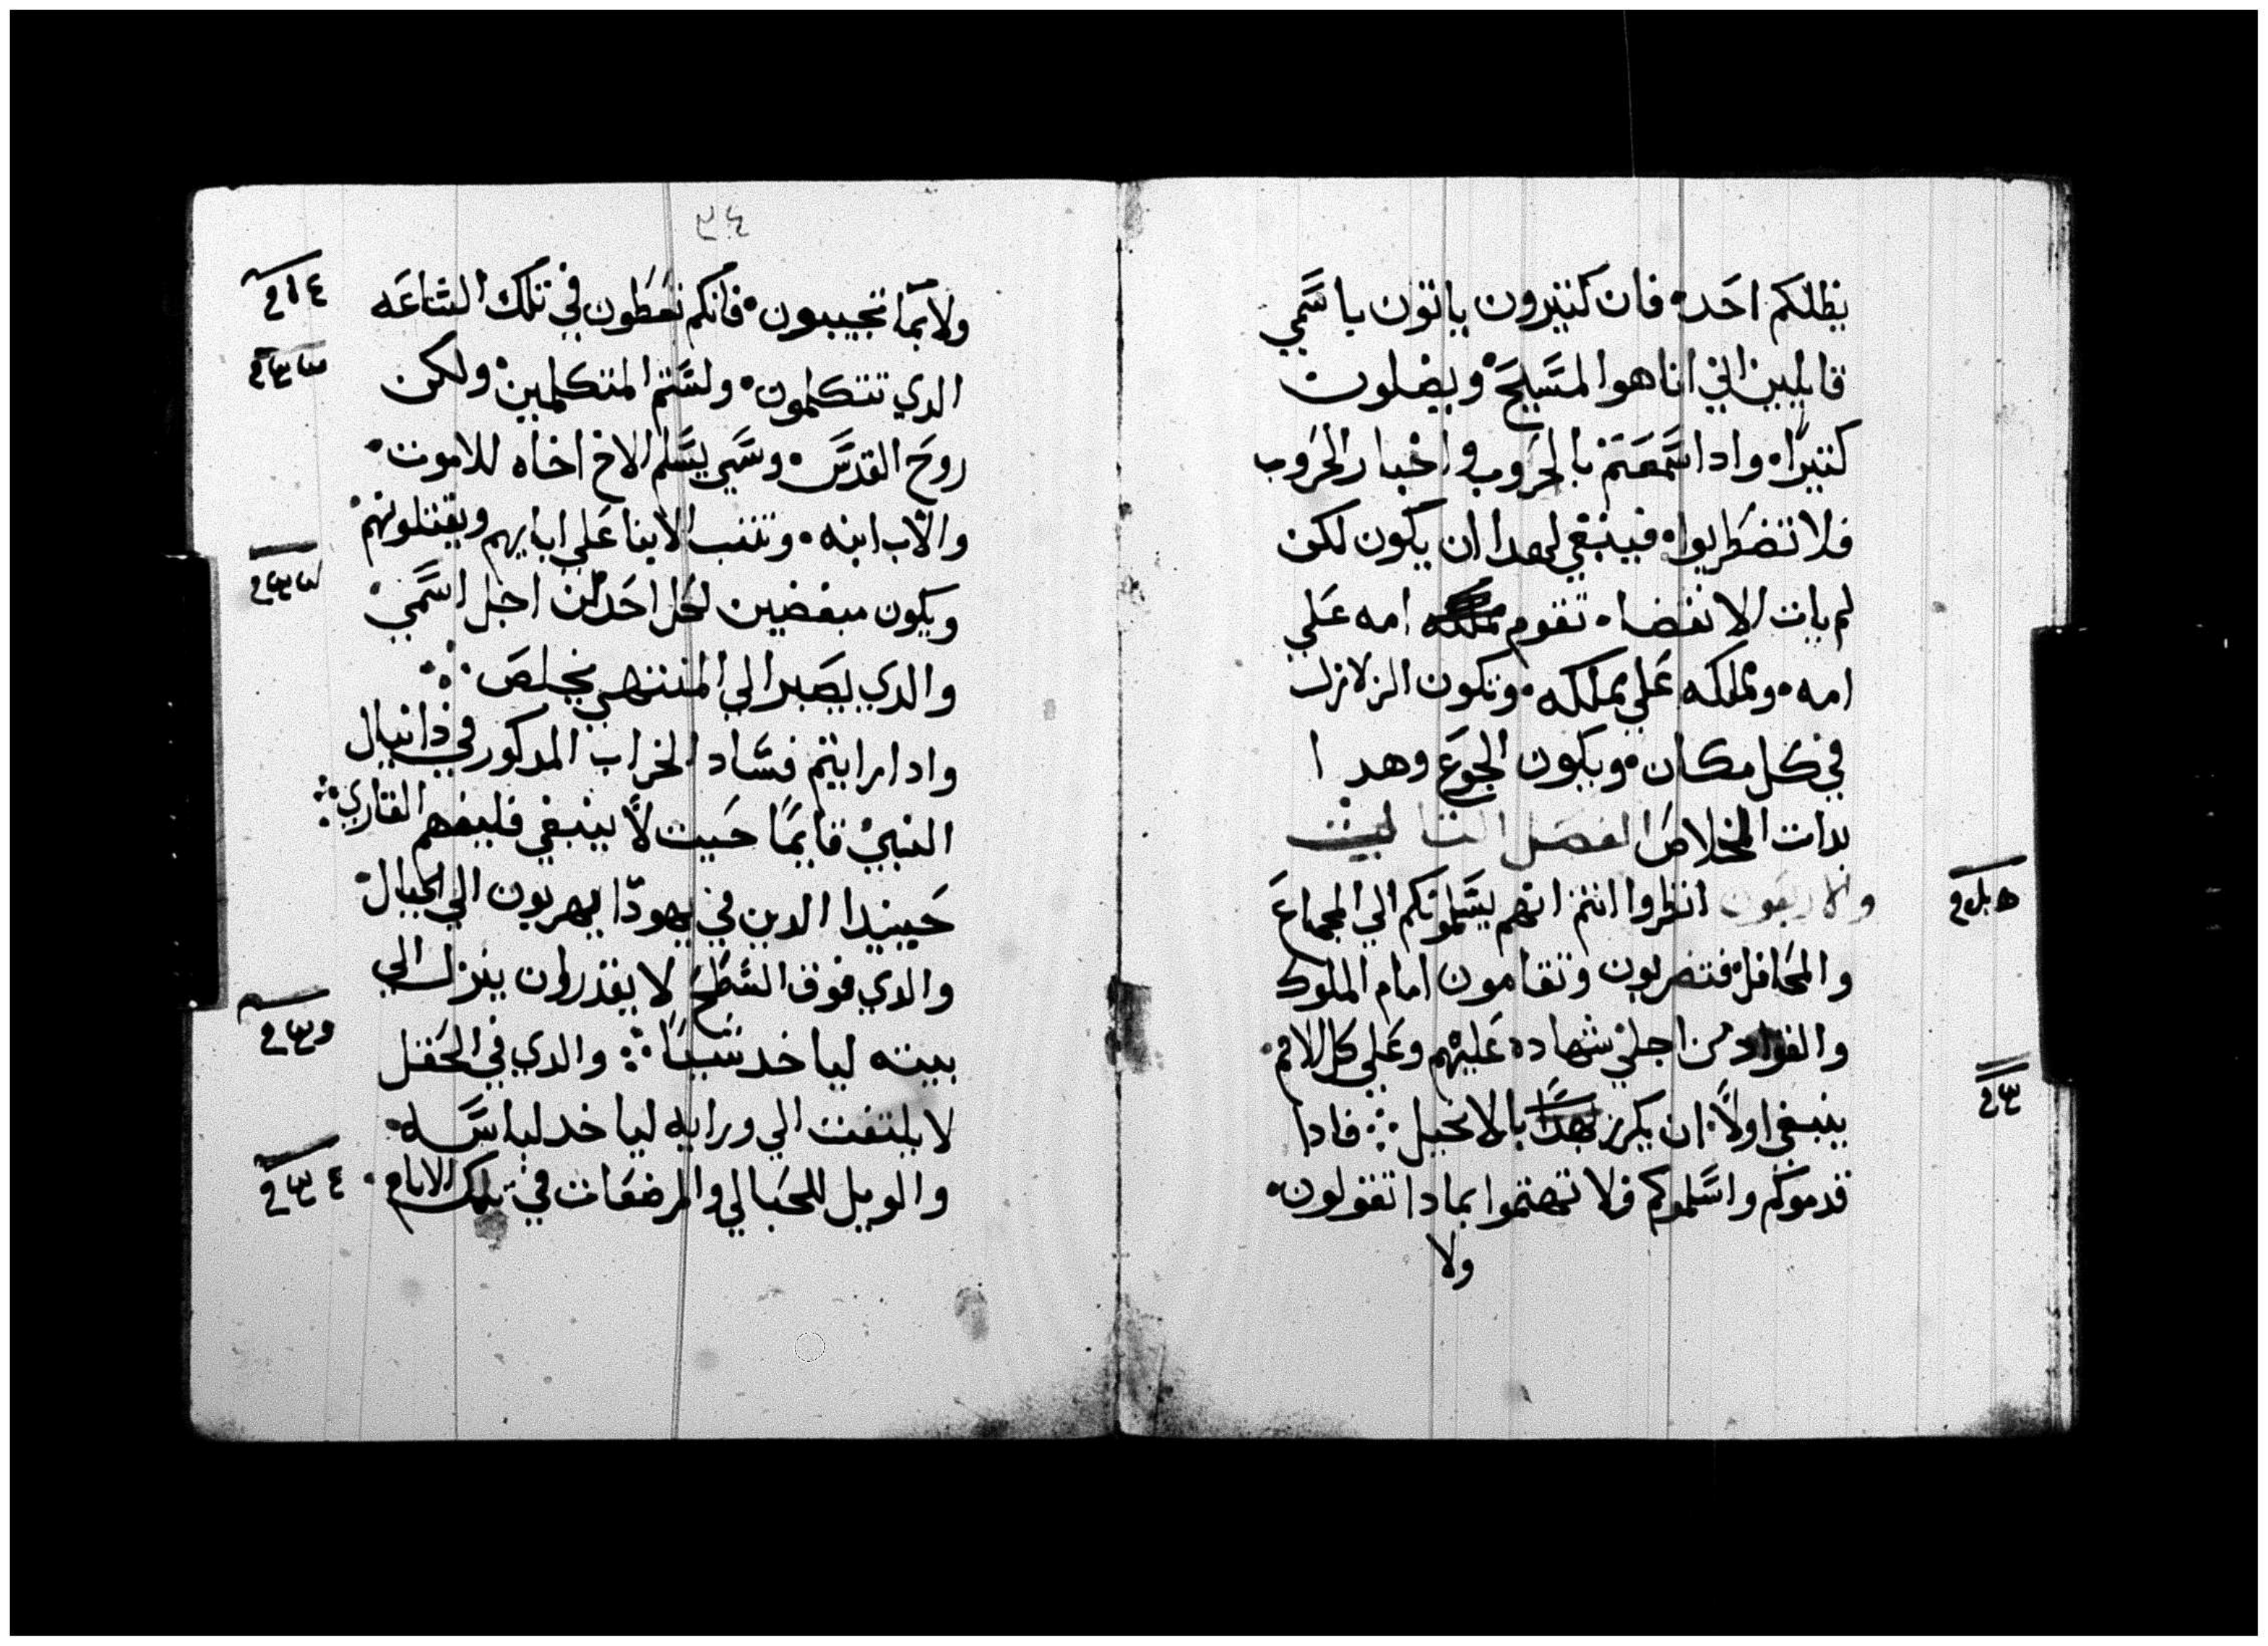 يظلكم احد. فان كتيرون ياتون باسمي
قايلين اني انا هوا المسيح. ويضلون
كتيرا. وادا سمعتم بالحروب واخبار الحروب
فلا تضطربوا. فينبغي لهدا ان يكون لكن
لم يات الانقضا. تقوم امه علي
امه. ومملكه علي مملكه. وتكون الزلازل
في كل مكان. ويكون الجوع وهدا
بدات المخلاص الفصل التالت
والاربعون انظروا انتم انهم يسلمونكم الي المجماع
والمحافل فتضربون وتقامون امام الملوك
والقواد من اجلي شهاده عليهم وعلي كل الامم.
ينبغي اولا. ان يكرز بهدا بالانجيل ⁘ فادا
قدموكم واسلموكم فلا تهتموا بمادا تقولون.
ولا
٣٤
ولا بما تجيبون. فانكم تعطون في تلك الساعه
الدي تتكلمون. ولستم المتكلمين. ولكن
روح القدس. وسي يسلم الاخ اخاه للاموت.
والاب ابنه. وتثب الابنا علي ابايهم ويقتلونهم.
ويكون مبغضين لكل احد من اجل اسمي.
والدي يصبر الي المنتهي يخلص ⁘
وادا رايتم فساد الخراب المدكور في دانيال
النبي قايما حيت لا ينبغي فليفهم القاري ⁘
حينيدا الدين في يهودا يهربون الي الجبال.
والدي فوق السطح لا يقدروان ينزل الي
بيته لياخد شيا ⁘ والدي في الحقل
لا يلتفت الي ورايه لياخد لباسه.
والويل للحبالي والمرضعات في تلك الايام.